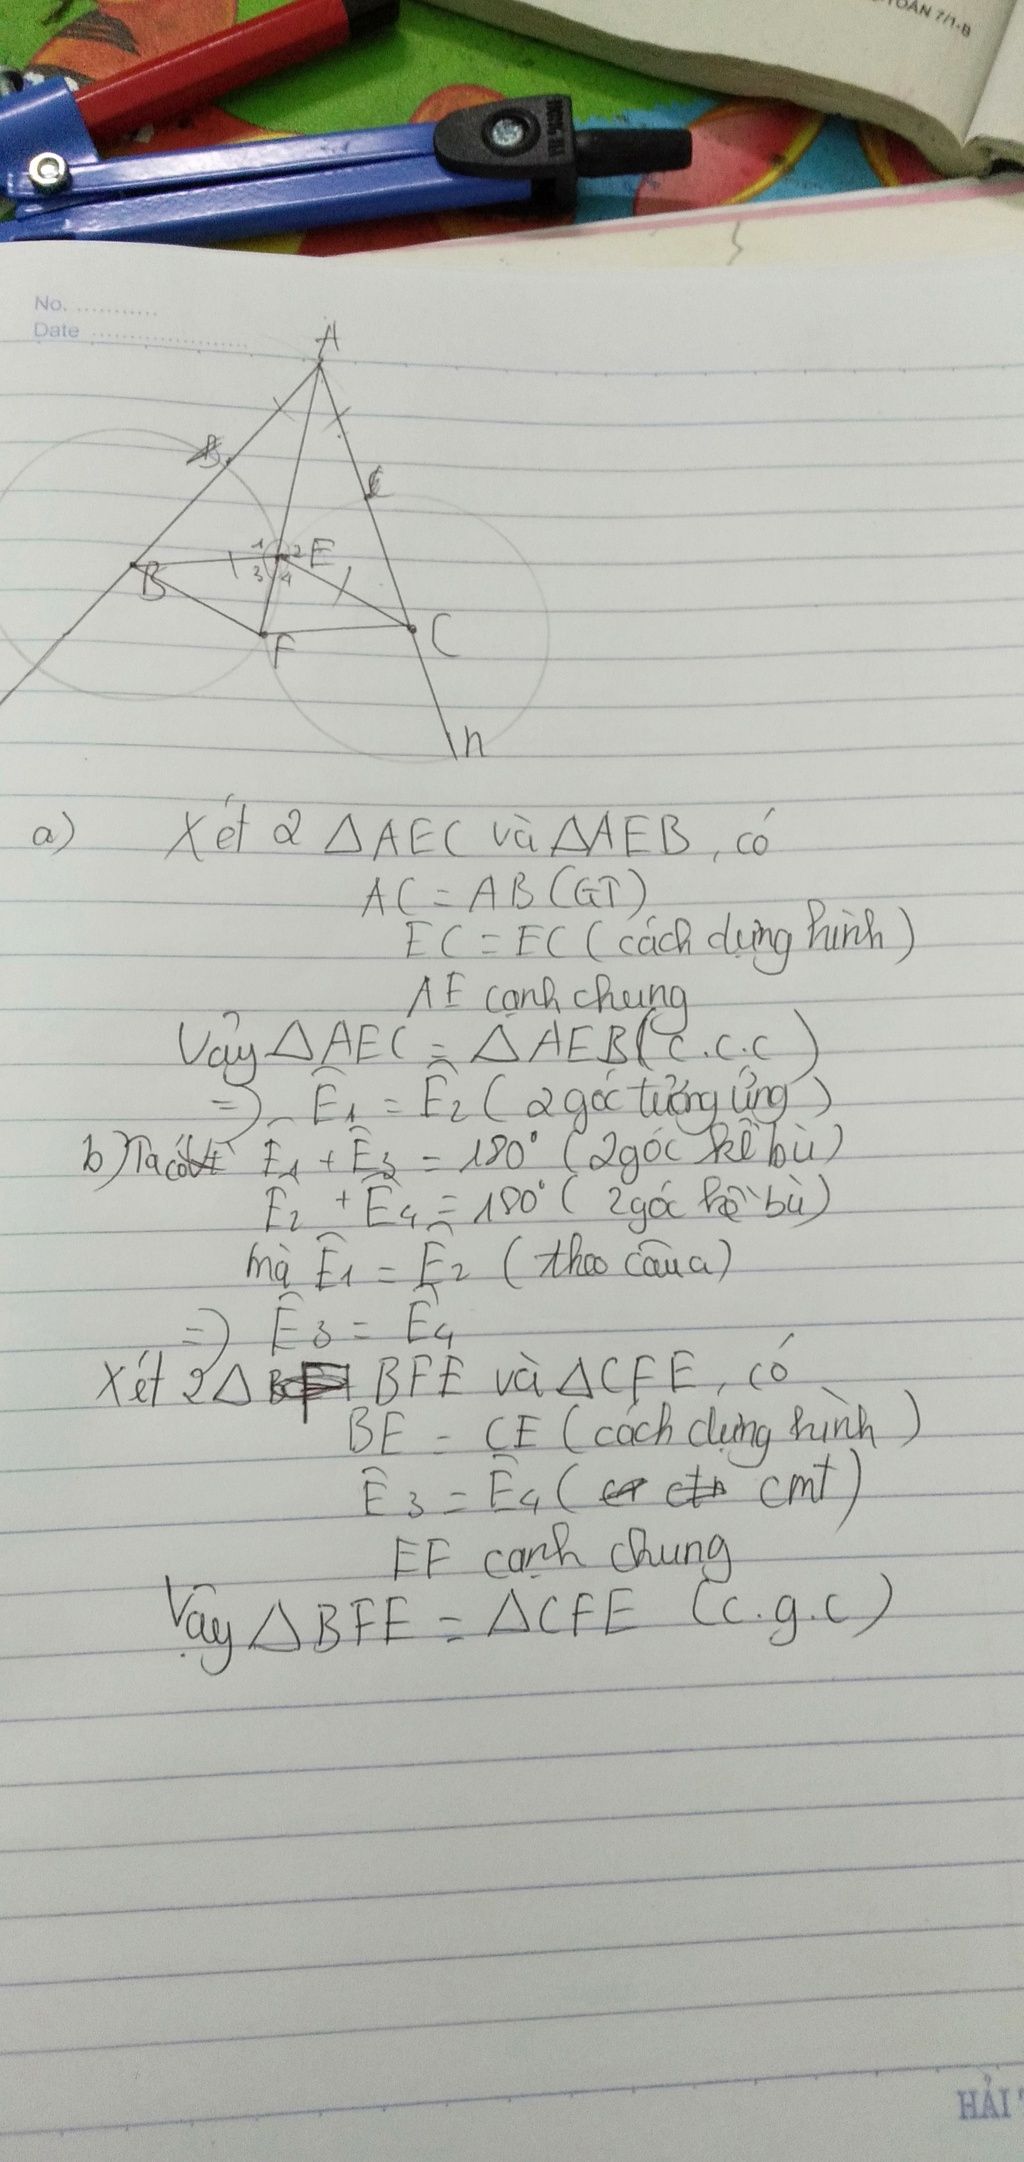 TOÁN 7/1-B
No. ............
Date ........................
A
B
C
1 2 E
3 4
B
F
C
n
a) Xét 2 △AEC và △AEB, có
AC = AB (GT)
EC = EC (cách dựng hình)
AE cạnh chung
Vậy △AEC = △AEB (c.c.c)
=> Ê1 = Ê2 (2 góc tương ứng)
b) Ta có Ê1 + Ê3 = 180° (2 góc kề bù)
Ê2 + Ê4 = 180° (2 góc kề bù)
mà Ê1 = Ê2 (theo câu a)
=> Ê3 = Ê4
Xét 2△ BFE và △CFE, có
BE = CE (cách dựng hình)
Ê3 = Ê4 (cmt)
EF cạnh chung
Vậy △BFE = △CFE (c.g.c)
HẢI